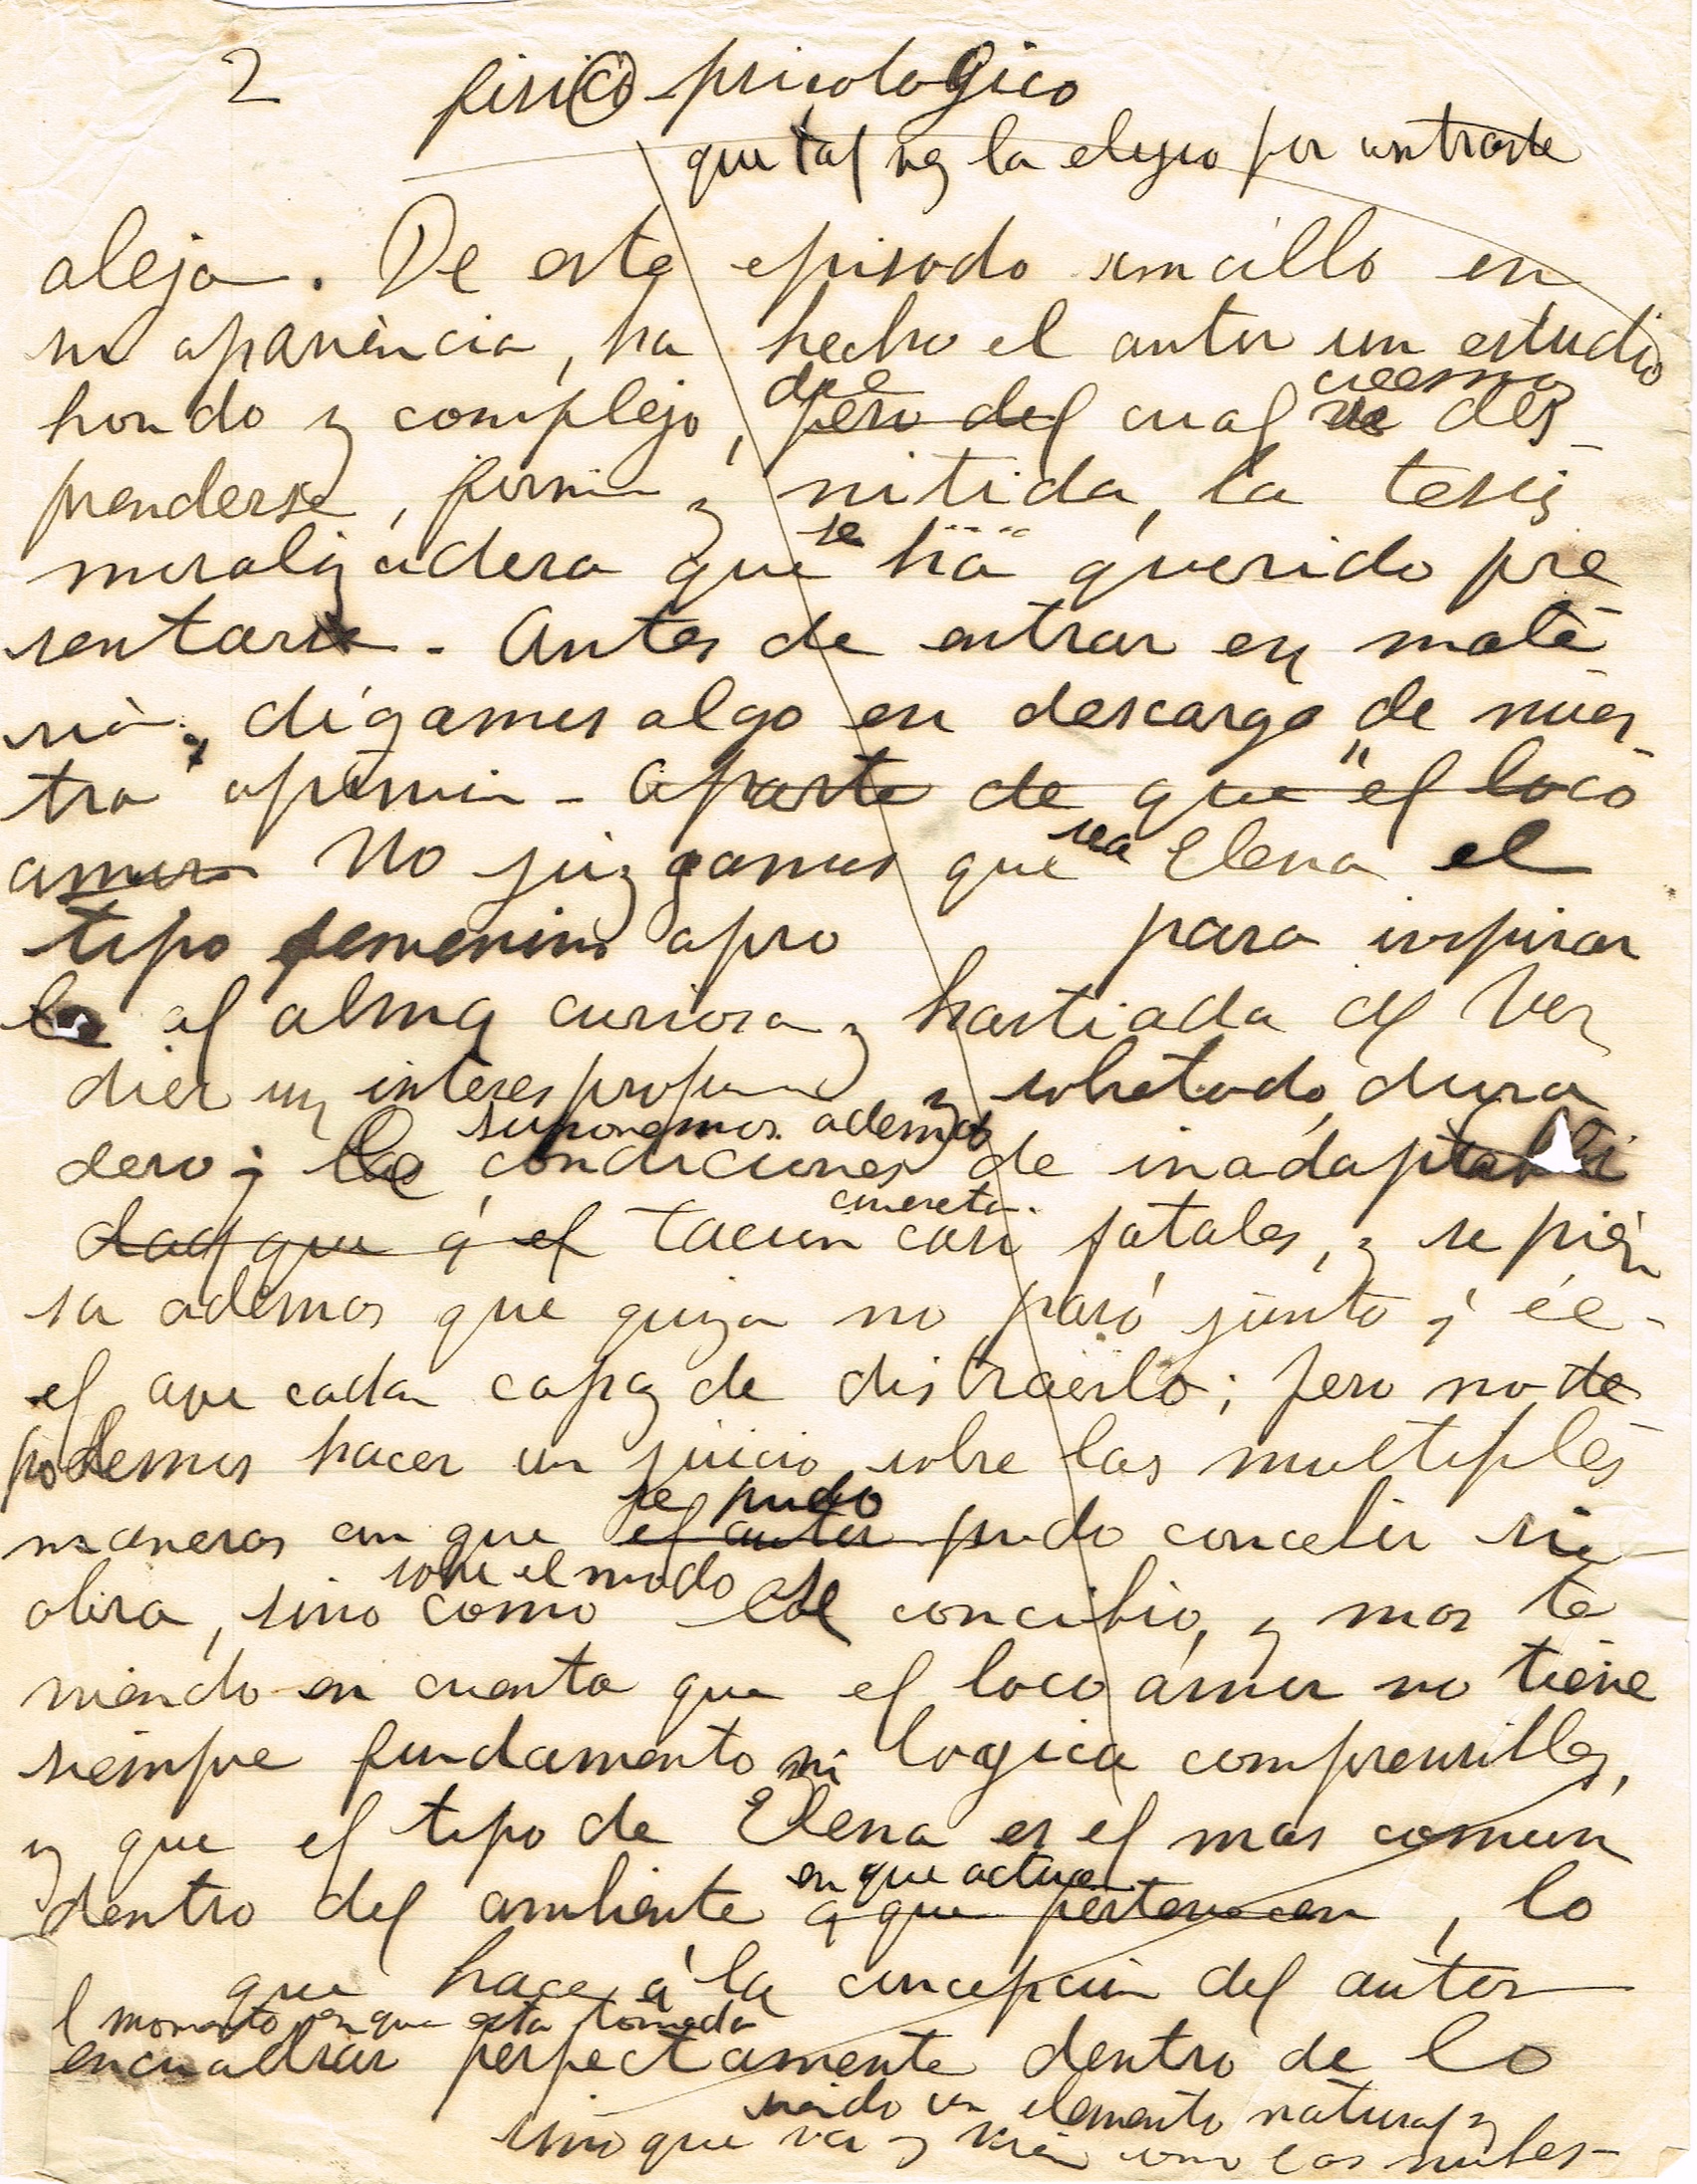 2 fisico psicologico
que tal vez la eligio por contraste
aleja. De este episodo sencillo en
su apariencia, ha hecho el autor un estudio
del creemos
hondo y complejo, pero del cual ve des-
prenderse, firme y nitida, la tesis
se
moralizadora que ha querido pre
sentarse - Antes de entrar en mate
ria, digamos algo en descargo de nues-
tra opinion - aparte de que "el loco
sea
amor No juzgamos que Elena el
tipo femenino apro para inspirar
le al alma curiosa y hastiada del Ver
dier un interes profundo y sobretodo, dura
suponemos ademas
dero; las condiciones de inadaptabili
concreta
dad que á el tacun casi fatales, y se pien
sa ademas que quiza no pasó junto á él -
el ave cada capaz de distraerlo; pero no de
podemos hacer un juicio sobre las multiples
se pudo
maneras en que el autor pudo concebir su
sobre el modo
obra, sino como el concibio, y mas te
niendo en cuenta que el loco amor no tiene
siempre fundamento ni logica comprensibles,
y que el tipo de Elena es el mas comun
en que actua
dentro del ambiente a que pertenecen, lo
que hace á la concepcion del autor
l momento en que esta tomada
encuadrar perfectamente dentro de lo
siendo un elemento natural y
sino que va y viene como las nubes-